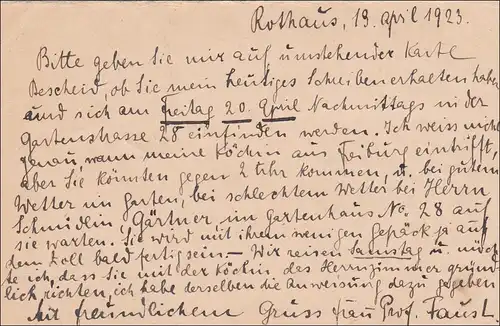 Rothaus, 13. April 1923.
Bitte geben Sie mir auf umstehender Karte
Bescheid, ob Sie mein heutiges Schreiben erhalten haben
und sich am Freitag 20. April Nachmittags in der
Gartenstrasse 28 einfinden werden. Ich weiss nicht
genau, wann meine Köchin aus Freiburg eintrifft,
aber Sie könnten gegen 2 Uhr kommen, u. bei gutem
Wetter im Garten, bei schlechtem Wetter bei Herrn
Schmidlin, Gärtner im Gartenhaus No. 28 auf
sie warten. Sie wird mit ihrem wenigen Gepäck ja auf
dem Zoll bald fertig sein – Wir reisen Samstag u. möch-
te ich, dass Sie mit der Köchin des Herrnzimmer gründ-
lich richten, ich habe derselben die Anweisung dazu gegeben
Mit freundlichem Gruss Frau Prof. Faust